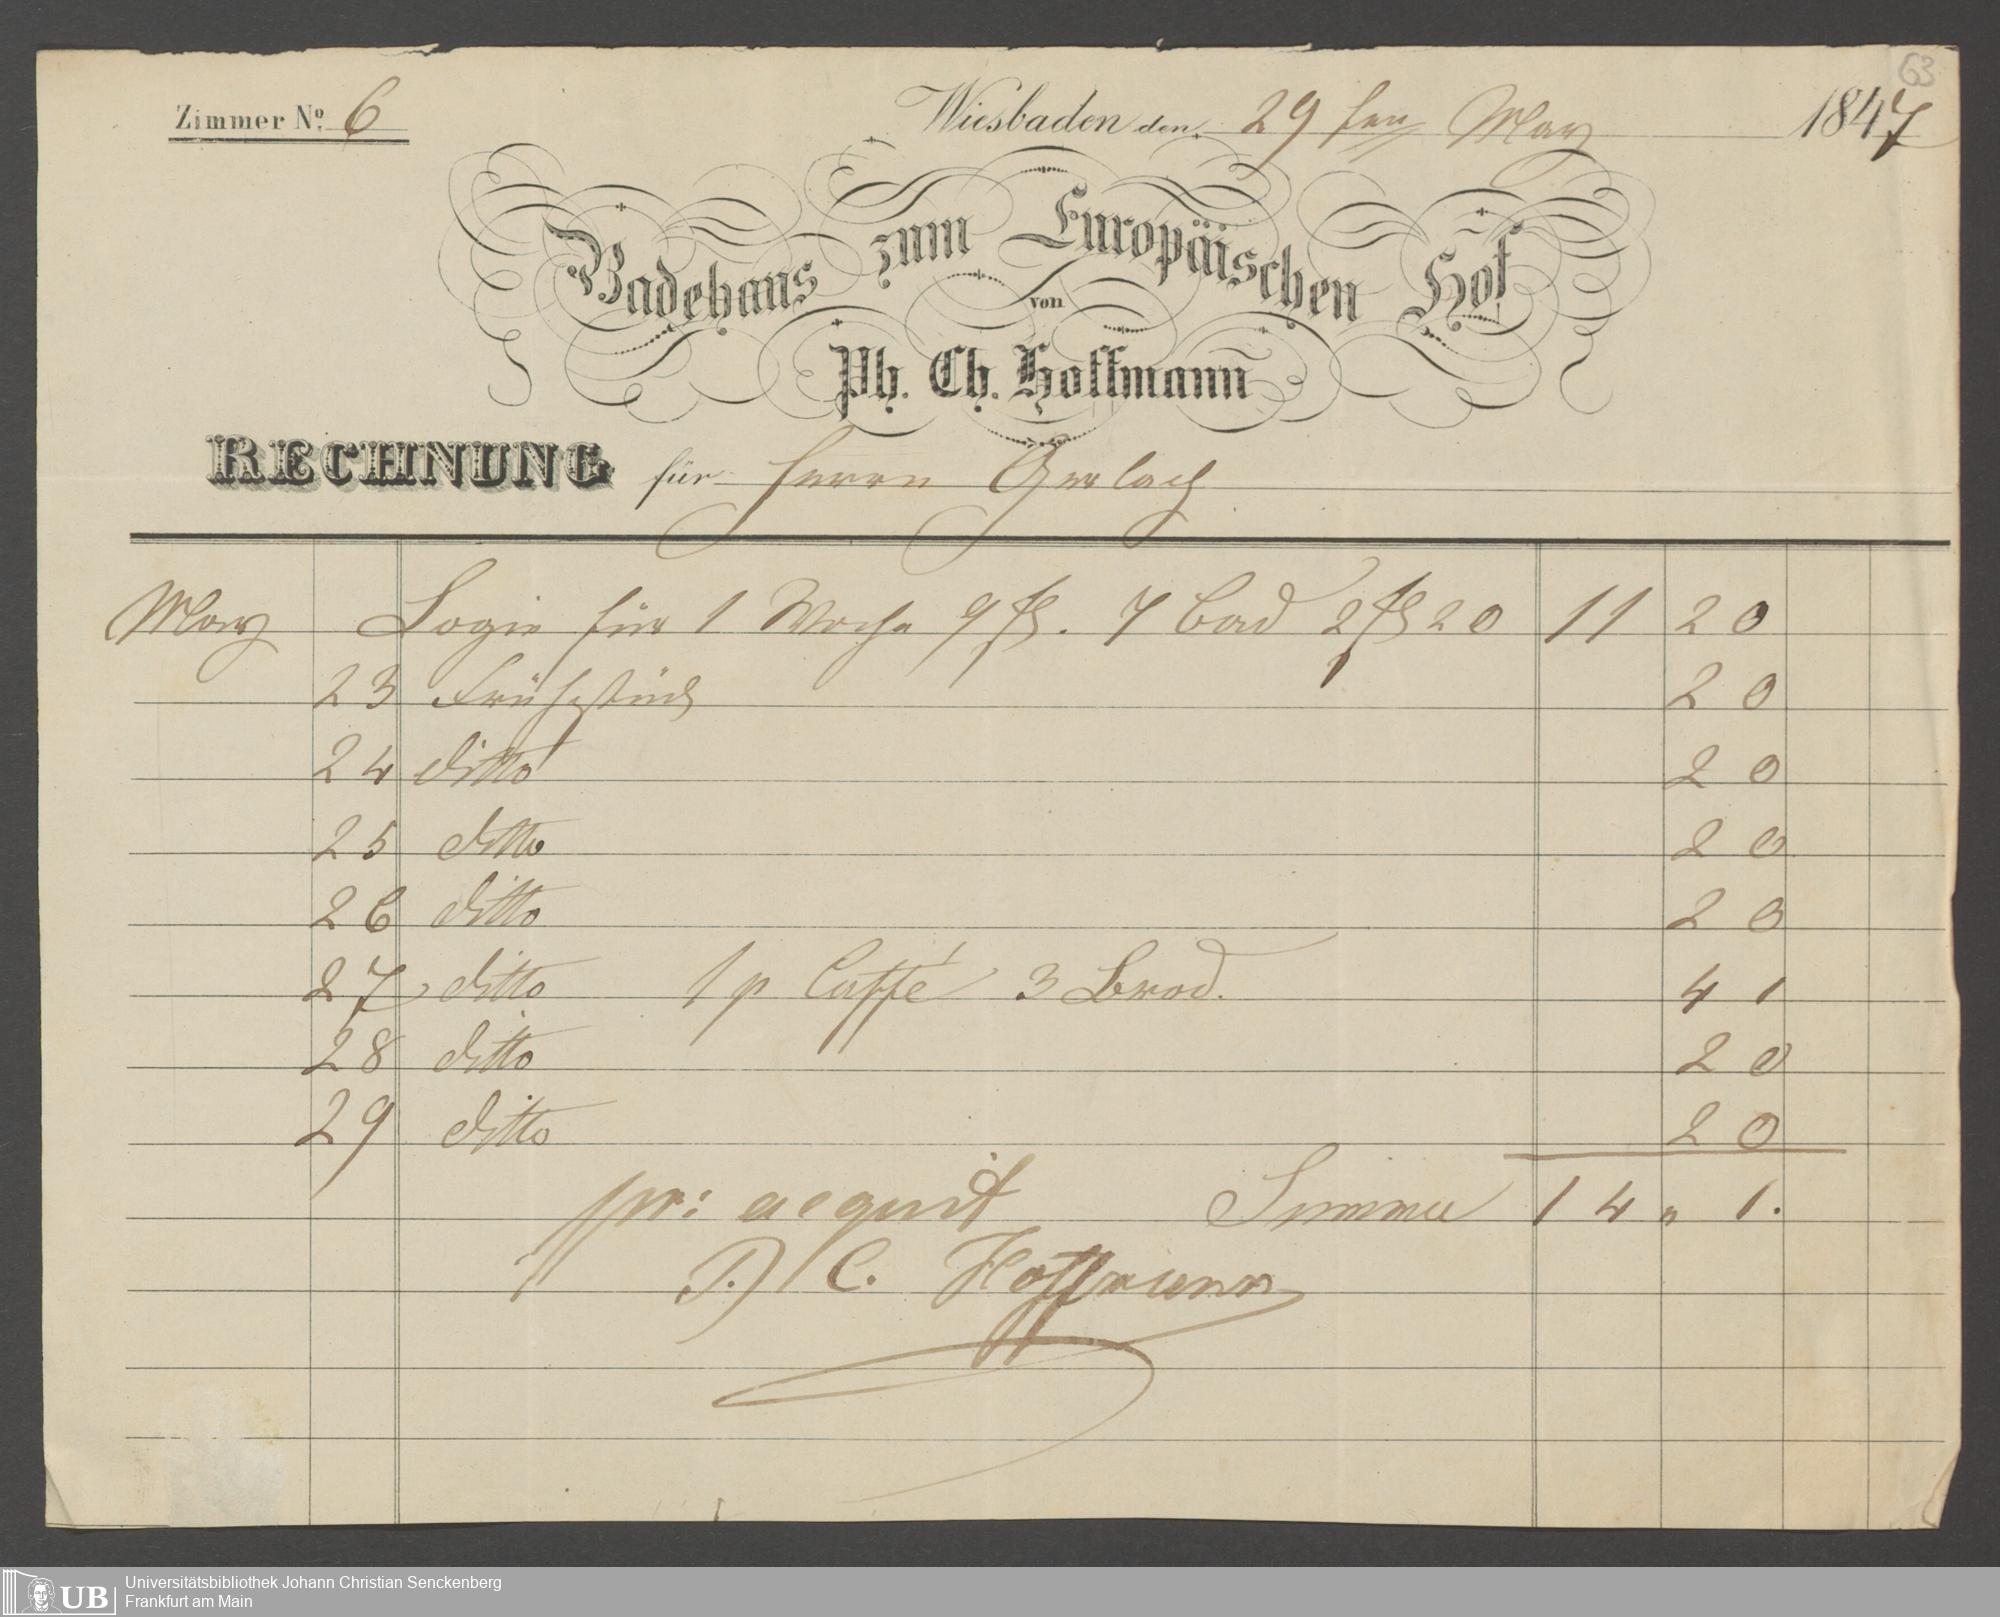 63
Zimmer No. 6 Wiesbaden den 29ten May 1847
Badehaus zum Europäischen Hof
von
Ph. Ch. Hoffmann
RECHNUNG für Herrn Gerlach
May Logie für 1 Woche 9 fl. 7 Bad 2 fl 20 11 20
23 Frühstück 20
24 ditto 20
25 ditto 20
26 ditto 20
27 ditto 1 p Caffé 3 Brod. 41
28 ditto 20
29 ditto 20
pr: acquit Summa 14 " 1.
P. C. Hoffmann
UB Universitätsbibliothek Johann Christian Senckenberg
Frankfurt am Main